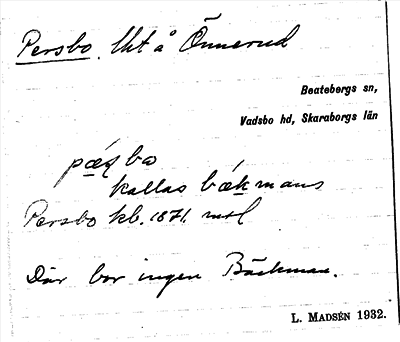 Persbo. Lht å Önnerud
Beatebergs sn,
Vadsbo hd, Skaraborgs län
pæ̨ʂbω
kallas bækmans
Persbo kb. 1871. mtl
Där bor ingen Bäckman.
L. MADSÉN 1932.